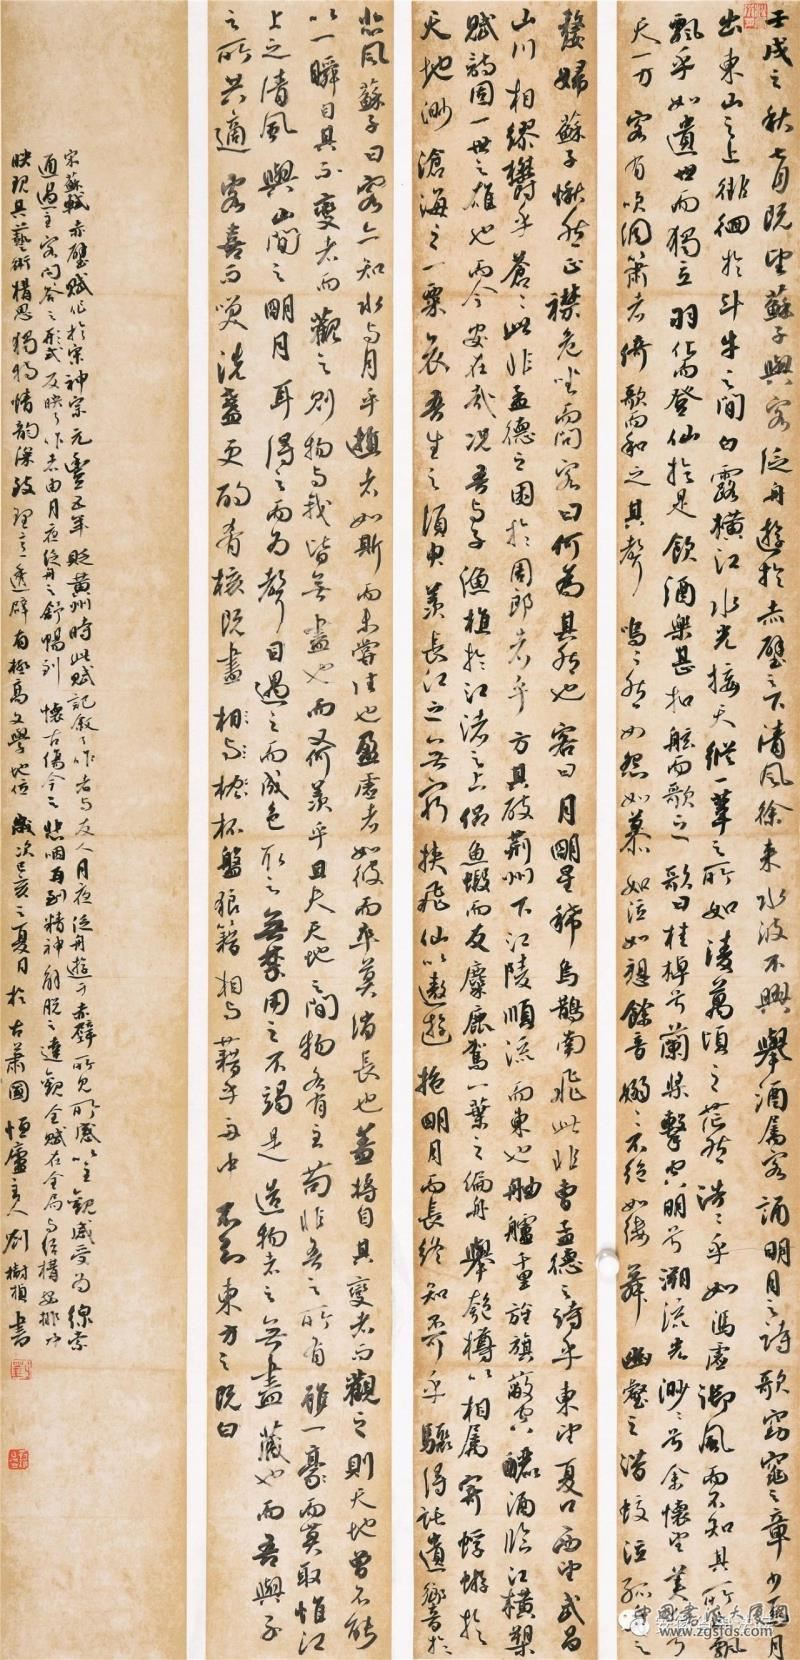 壬戌之秋七月既望蘇子與客泛舟遊於赤壁之下清風徐來水波不興舉酒屬客誦明月之詩歌窈窕之章少焉月
出東山之上徘徊於斗牛之間白露橫江水光接天縱一葦之所如陵萬頃之茫然浩浩乎如馮虛御風而不知其所止飄
飄乎如遺世而獨立羽化而登仙於是飲酒樂甚扣舷而歌之歌曰桂棹兮蘭槳擊空明兮溯流光渺渺兮余懷望美人兮
天一方客有吹洞簫者倚歌而和之其聲嗚嗚然如怨如慕如泣如愬餘音嫋嫋不絕如縷舞幽壑之潛蛟泣孤舟之
嫠婦蘇子愀然正襟危坐而問客曰何為其然也客曰月明星稀烏鵲南飛此非曹孟德之詩乎東望夏口西望武昌
山川相繆鬱乎蒼蒼此非孟德之困於周郎者乎方其破荊州下江陵順流而東也舳艫千里旌旗蔽空釃酒臨江橫槊
賦詩固一世之雄也而今安在哉況吾與子漁樵於江渚之上侶魚蝦而友麋鹿駕一葉之扁舟舉匏樽以相屬寄蜉蝣於
天地渺滄海之一粟哀吾生之須臾羨長江之無窮挾飛仙以遨遊抱明月而長終知不可乎驟得託遺響於
悲風蘇子曰客亦知水與月乎逝者如斯而未嘗往也盈虛者如彼而卒莫消長也蓋將自其變者而觀之則天地曾不能
以一瞬自其不變者而觀之則物與我皆無盡也而又何羨乎且夫天地之間物各有主苟非吾之所有雖一毫而莫取惟江
上之清風與山間之明月耳得之而為聲目遇之而成色取之無禁用之不竭是造物者之無盡藏也而吾與子
之所共適客喜而笑洗盞更酌肴核既盡相與枕杯盤狼籍相與藉乎舟中不知東方之既白
宋蘇軾赤壁賦作於宋神宗元豐五年貶黃州時此賦記敘了作者與友人月夜泛舟遊於赤壁所見所感以主觀感受為線索
通過主客問答之形式反映了作者由月夜泛舟之舒暢到懷古傷今之悲咽再到精神解脫之達觀全賦在全局與結構安排中
映現其藝術構思獨特情韻深致理意透闢有極高文學地位歲次己亥之夏月於古蕭國恒廬主人劉樹楨書
中國書法大厦網
www.zgsfds.com